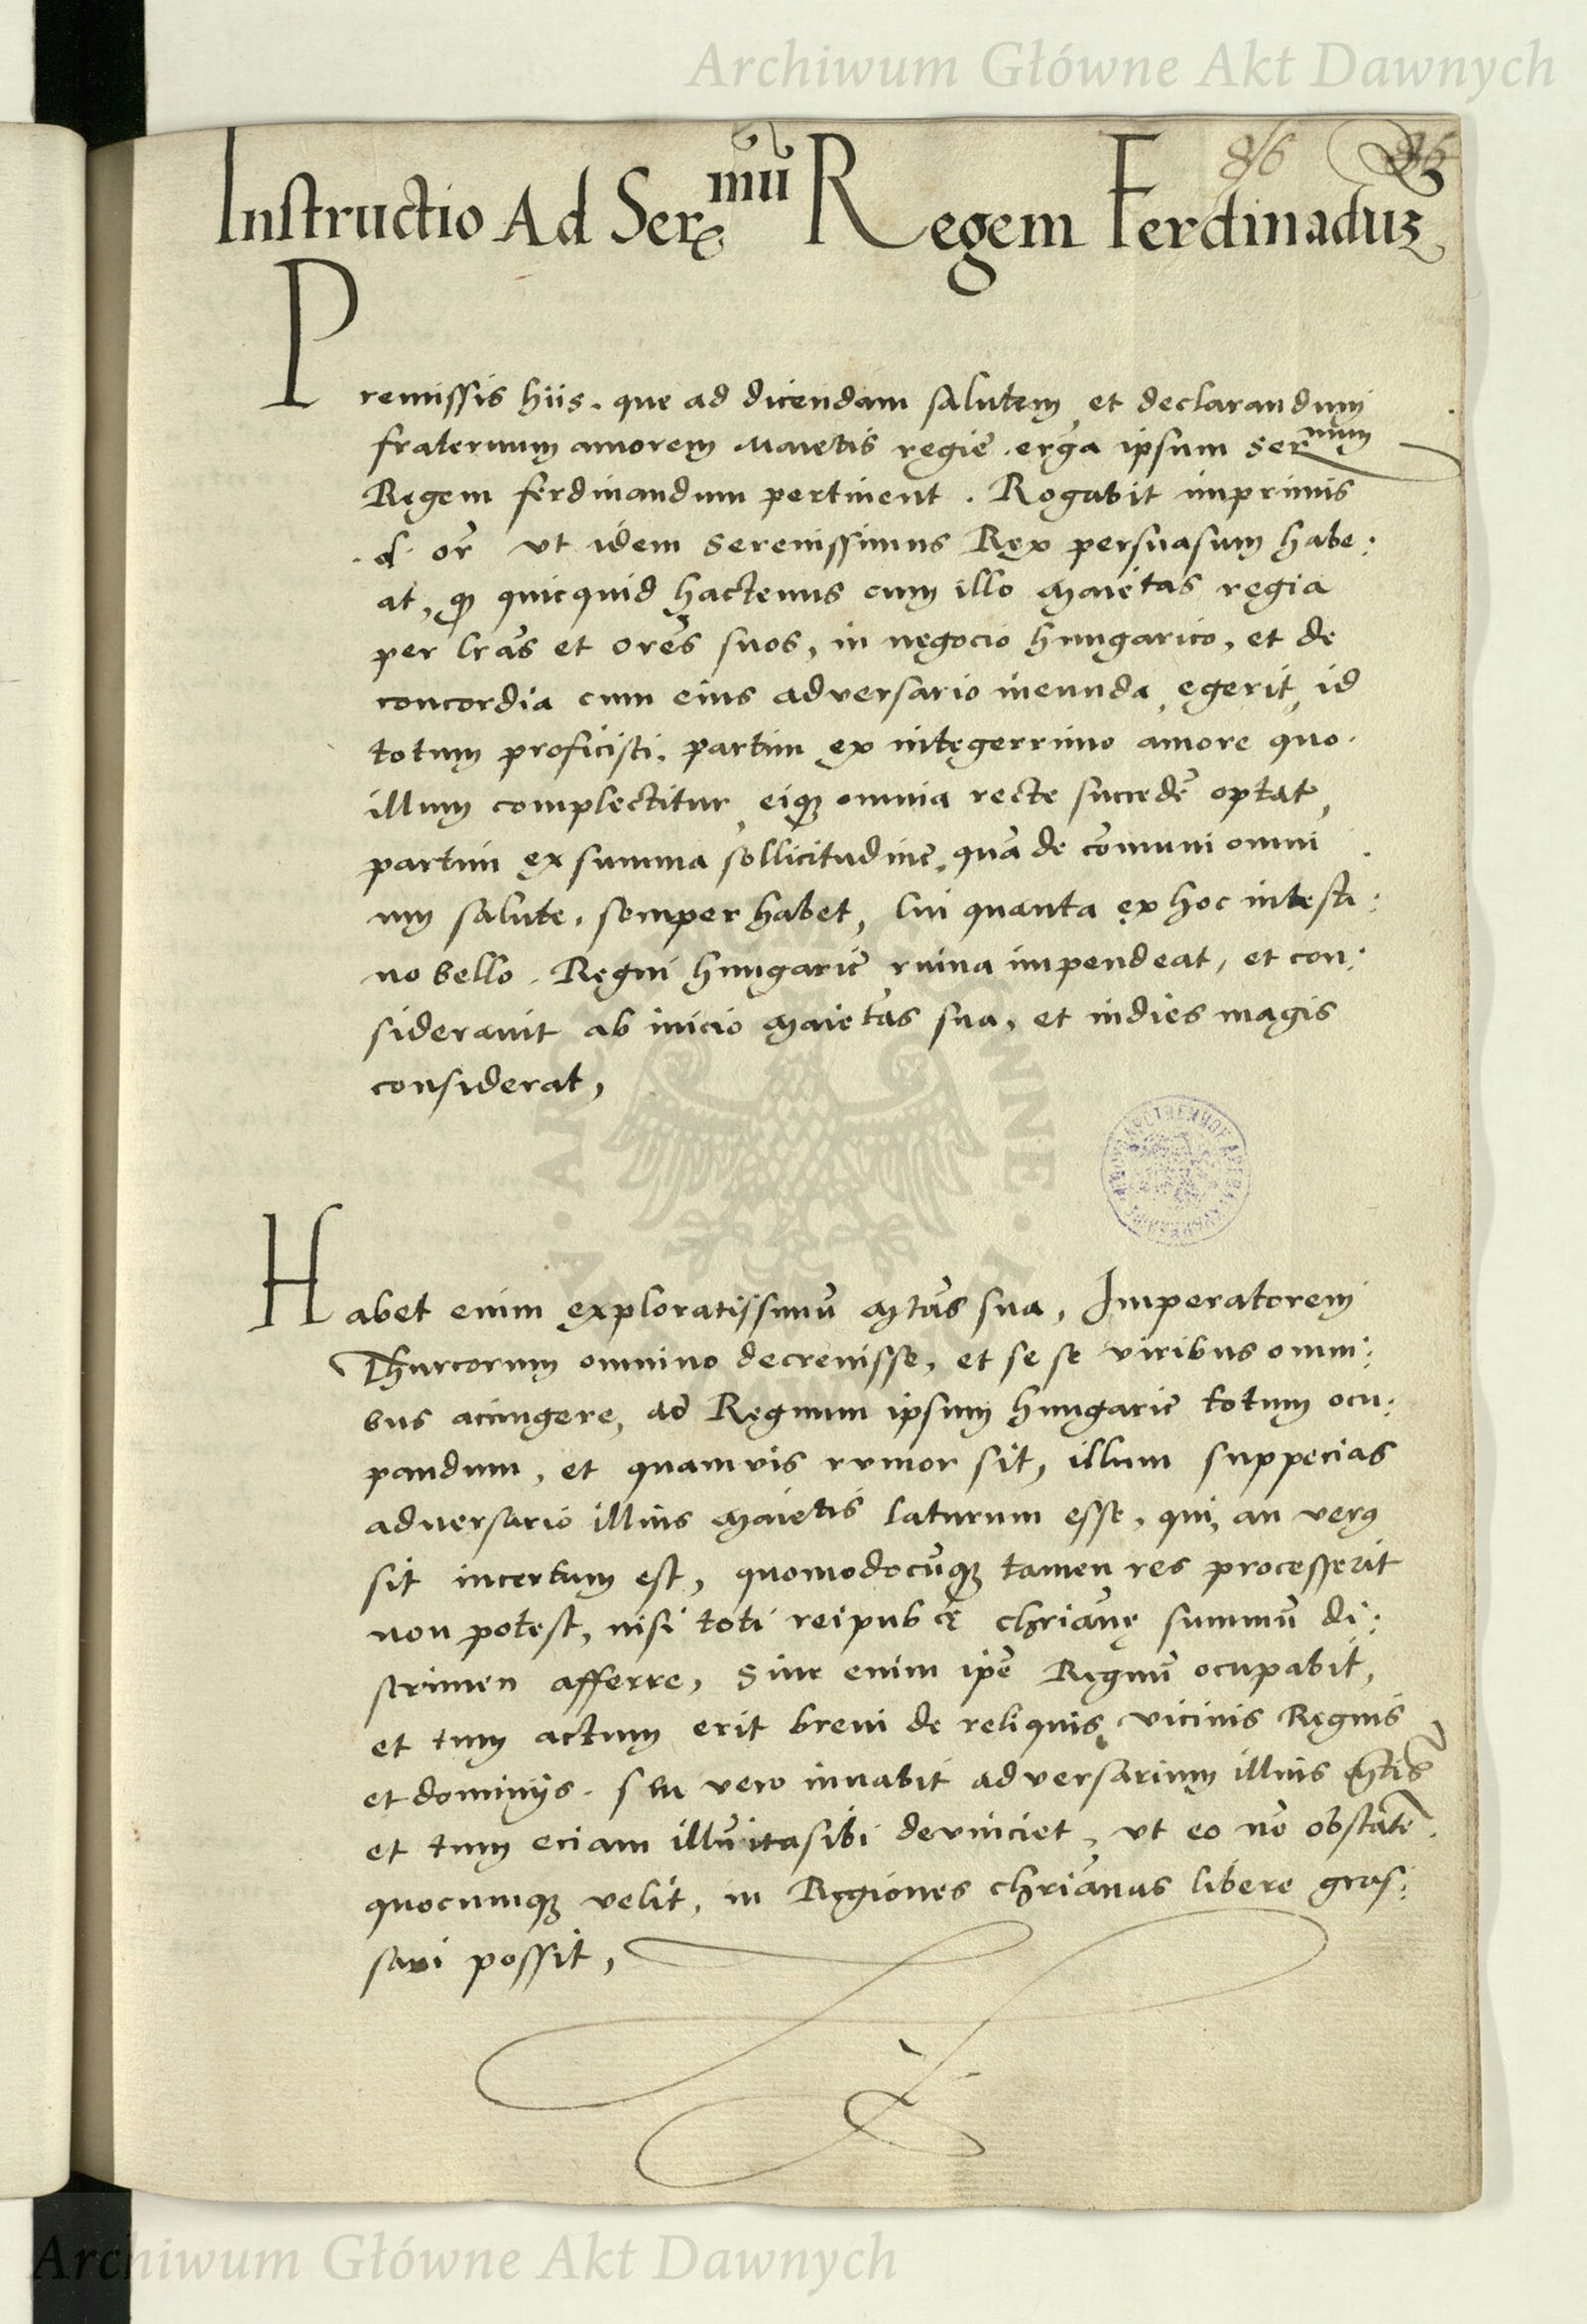 Archiwum Główne Akt Dawnych
86
Instructio Ad Ser.mū Regem Ferdinaduʒ
Premissis hiis. que ad dicendam salutem, et declarandum
fraternum amorem Maietis regie. erga ipsum Sermum
Regem ferdinandum pertinent. Rogabit imprimis
.d. or̄ vt idem Serenissimus Rex persuasum habe:
at, qȝ quicquid hactenus cum illo Maietas regia
per lrās et orēs suos, in negocio hungarico, et de
concordia cum eius adversario ineunda, egerit, id
totum proficisci, partim ex integerrimo amore quo.
illum complectitur, eiqȝ omnia recte succedē optat,
partim ex summa sollicitudine, quā de cōmuni omni
um salute, semper habet, Cui quanta ex hoc intesti:
no bello. Regni hungarie ruina impendeat, et con:
sideravit ab inicio Maietas sua, et indies magis
considerat,
Habet enim exploratissimū Mtās sua, Imperatorem
Thurcorum omnino decrevisse, et se se viribus omni:
bus accingere, ad Regnum ipsum hungarie totum ocu:
pandum, et quamvis rumor sit, illum suppecias
adversario illius Maietis laturum esse, qui, an verꝰ
sit incertum est, quomodocūqȝ tamen res processerit
non potest, nisi toti reipub cę chrianę summū di:
scrimen afferre, Sive enim ipē Regnū ocupabit,
et tum actum erit brevi de reliquis, vicinis Regnis
et dominijs. seu vero iuvabit adversarium illius Mtis
et tum eciam illū ita sibi devinciet, vt eo nō obstātē.
quocumqȝ velit, in Regiones chriānas libere gras:
sari possit,
Archiwum Główne Akt Dawnych